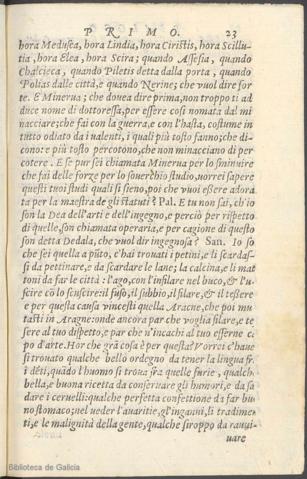 PRIMO. 23
hora Medusea, hora Lindia, hora Ciristis, hora Scillu-
tia, hora Elea, hora Scira; quando Assesia, quando
Chalcieca, quando Piletis detta dalla porta, quando
Polias dalle città, e quando Nerine; che vuol dire for
te. E Minerua; che douea dire prima, non troppo ti ad
duce nome di dottoressa, per essere cosi nomata dal mi
nacciare; che fai con la guerra, e con l'hasta, costume in
tutto odiato da i ualenti, i quali più tosto fanno; che di-
cono: e più tosto percotono, che non minacciano di per
cotere. E se pur sei chiamata Minerua per lo sminuire
che fai delle forze per lo souerchio studio, uorrei sapere
questi tuoi studi quali si sieno, poi che vuoi essere adora
ta per la maestra de gli statuti? Pal. E tu non sai, ch'io
son la Dea dell'arti e dell'ingegno, e perciò per rispetto
di quelle, son chiamata operaria, e per cagione di questo
son detta Dedala, che vuol dir ingegnosa? San. Io so
che sei quella a pūto, c'hai trouati i petini, e li scardas-
si da pettinare, e da scardare le lane; la calcina, e li mat
toni da far le città: l'ago, con l'infilare nel buco, & l'u-
scire cō lo scuscire: il fuso, il subbio, il filare, & il tessere
e per questa causa vincesti quella Aracne, che poi mu-
tasti in Aragne: onde ancora par che voglia filare, e te
sere al tuo dispetto, e par che n'incachi al tuo esserne ca
po d'arte. Hor che grā cosa è per questa? Vorrei c'haue
si trouato qualche bello ordegno da tener la lingua fra
i dēti, quādo l'huomo si troua fra quelle furie, qualche
bella, e buona ricetta da conseruare gli humori, e da sal
dare i ceruelli: qualche perfetta confettione da far buo
no stomaco; nel ueder l'auaritie, gl'inganni, li tradimen
ti, e le malignità della gente, qualche siroppo da rauui-
uare
Biblioteca de Galicia